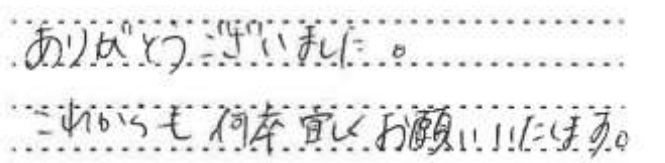 ありがとうございました。
これからも何卒宜しくお願いいたします。